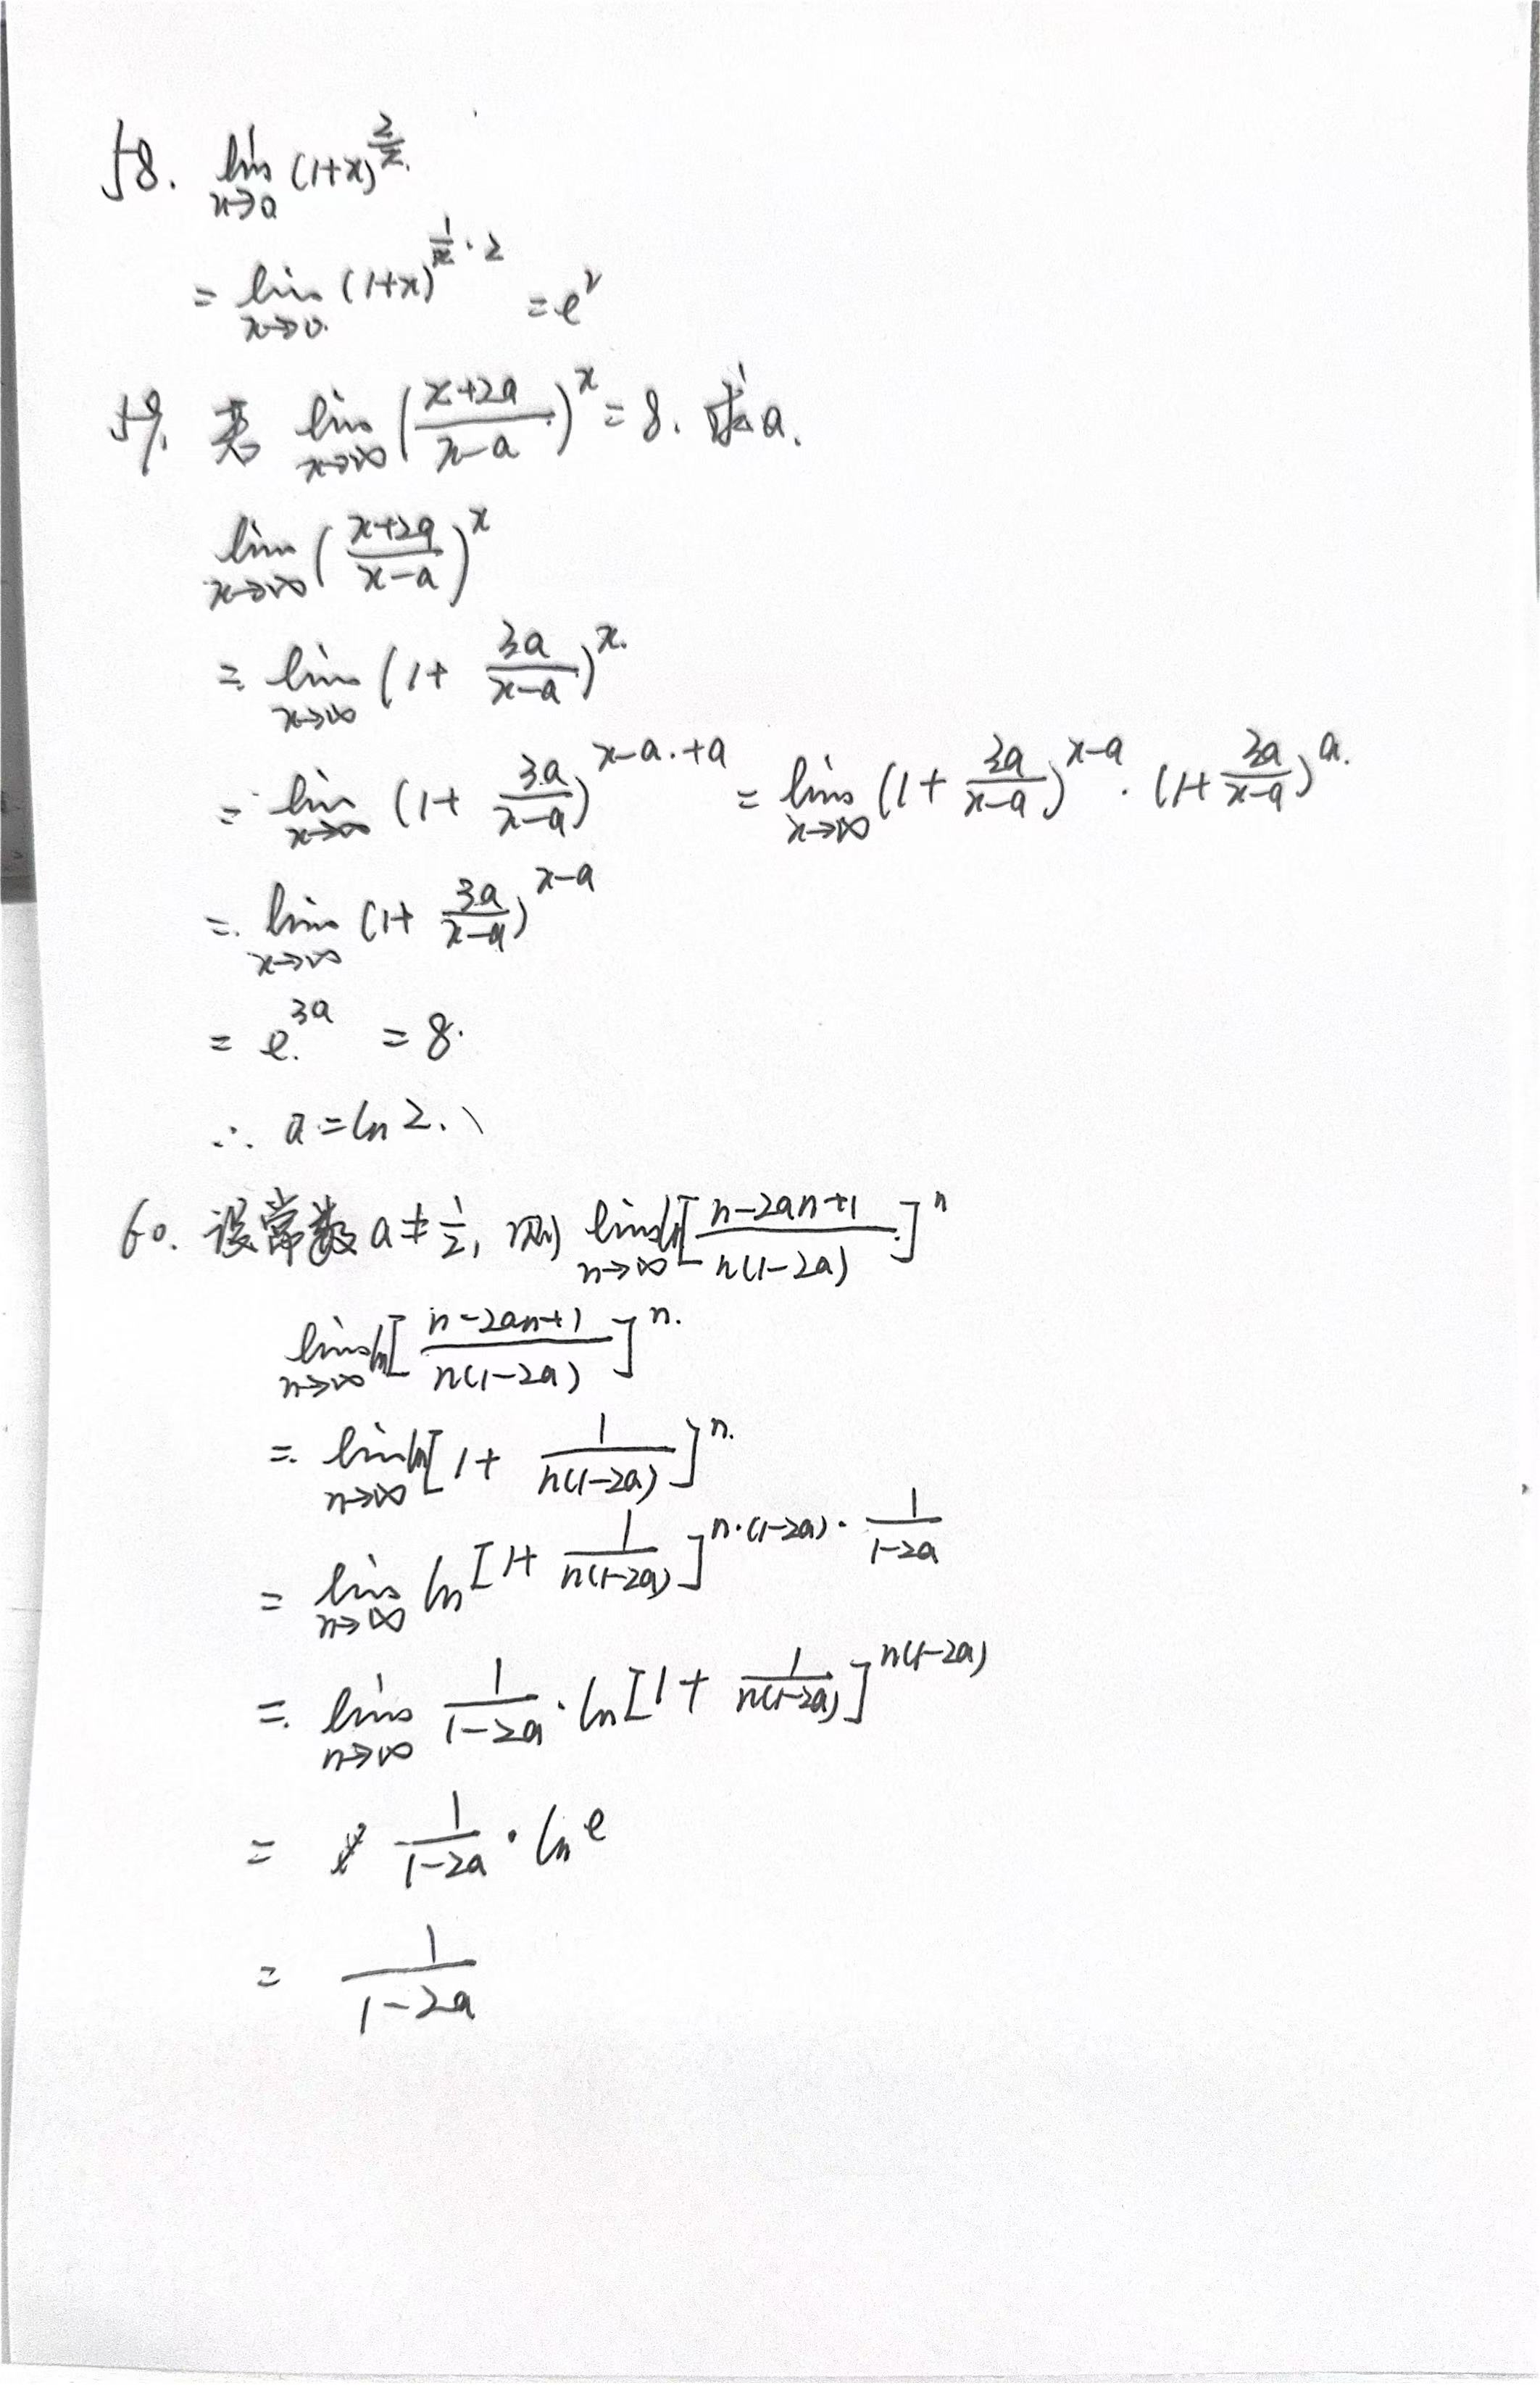 58. lim x→0 (1+x)^(2/x).
= lim x→0. (1+x)^(1/x · 2) = e^2
59. 若 lim x→∞ ((x+2a)/(x-a))^x = 8. 求a.
lim x→∞ ((x+2a)/(x-a))^x
= lim x→∞ (1+ 3a/(x-a))^x.
= lim x→∞ (1+ 3a/(x-a))^(x-a+a) = lim x→∞ (1+ 3a/(x-a))^(x-a) · (1+ 3a/(x-a))^a.
= lim x→∞ (1+ 3a/(x-a))^(x-a)
= e^(3a) = 8.
∴ a = ln 2.
60. 设常数 a≠1/2, 则 lim n→∞ ln[(n-2an+1)/(n(1-2a))]^n
lim n→∞ ln[(n-2an+1)/(n(1-2a))]^n.
= lim n→∞ ln[1+ 1/(n(1-2a))]^n.
= lim n→∞ ln[1+ 1/(n(1-2a))]^(n·(1-2a)· 1/(1-2a))
= lim n→∞ 1/(1-2a) · ln[1+ 1/(n(1-2a))]^(n(1-2a))
= 1/(1-2a) · ln e
= 1/(1-2a)